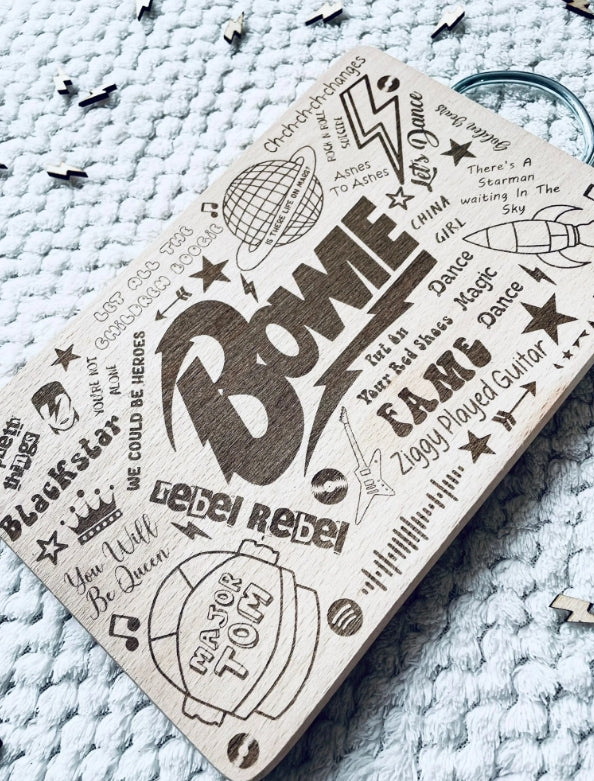 Ch-ch-ch-ch-changes
ROCK N ROLL
SUICIDE
Let's Dance
Golden Years
Ashes
To Ashes
There's A
Starman
waiting In The
Sky
IS THERE LIFE ON MARS?
CHINA
GIRL
BOWIE
LET ALL THE
CHILDREN BOOGIE
Dance
Magic
Dance
Put On
Your Red Shoes
FAME
Ziggy Played Guitar
WE COULD BE HEROES
YOU'RE NOT
ALONE
Pretty
things
Blackstar
Rebel Rebel
You Will
Be Queen
MAJOR
TOM